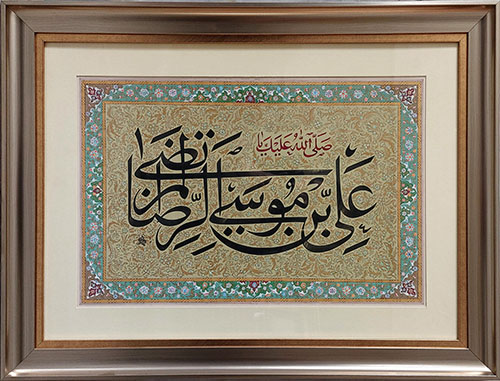 صَلَّی اللهُ عَلَیْكَ یا
عَلِیَّ بْنَ مُوسَی الرِّضَا المُرتَضیٰ